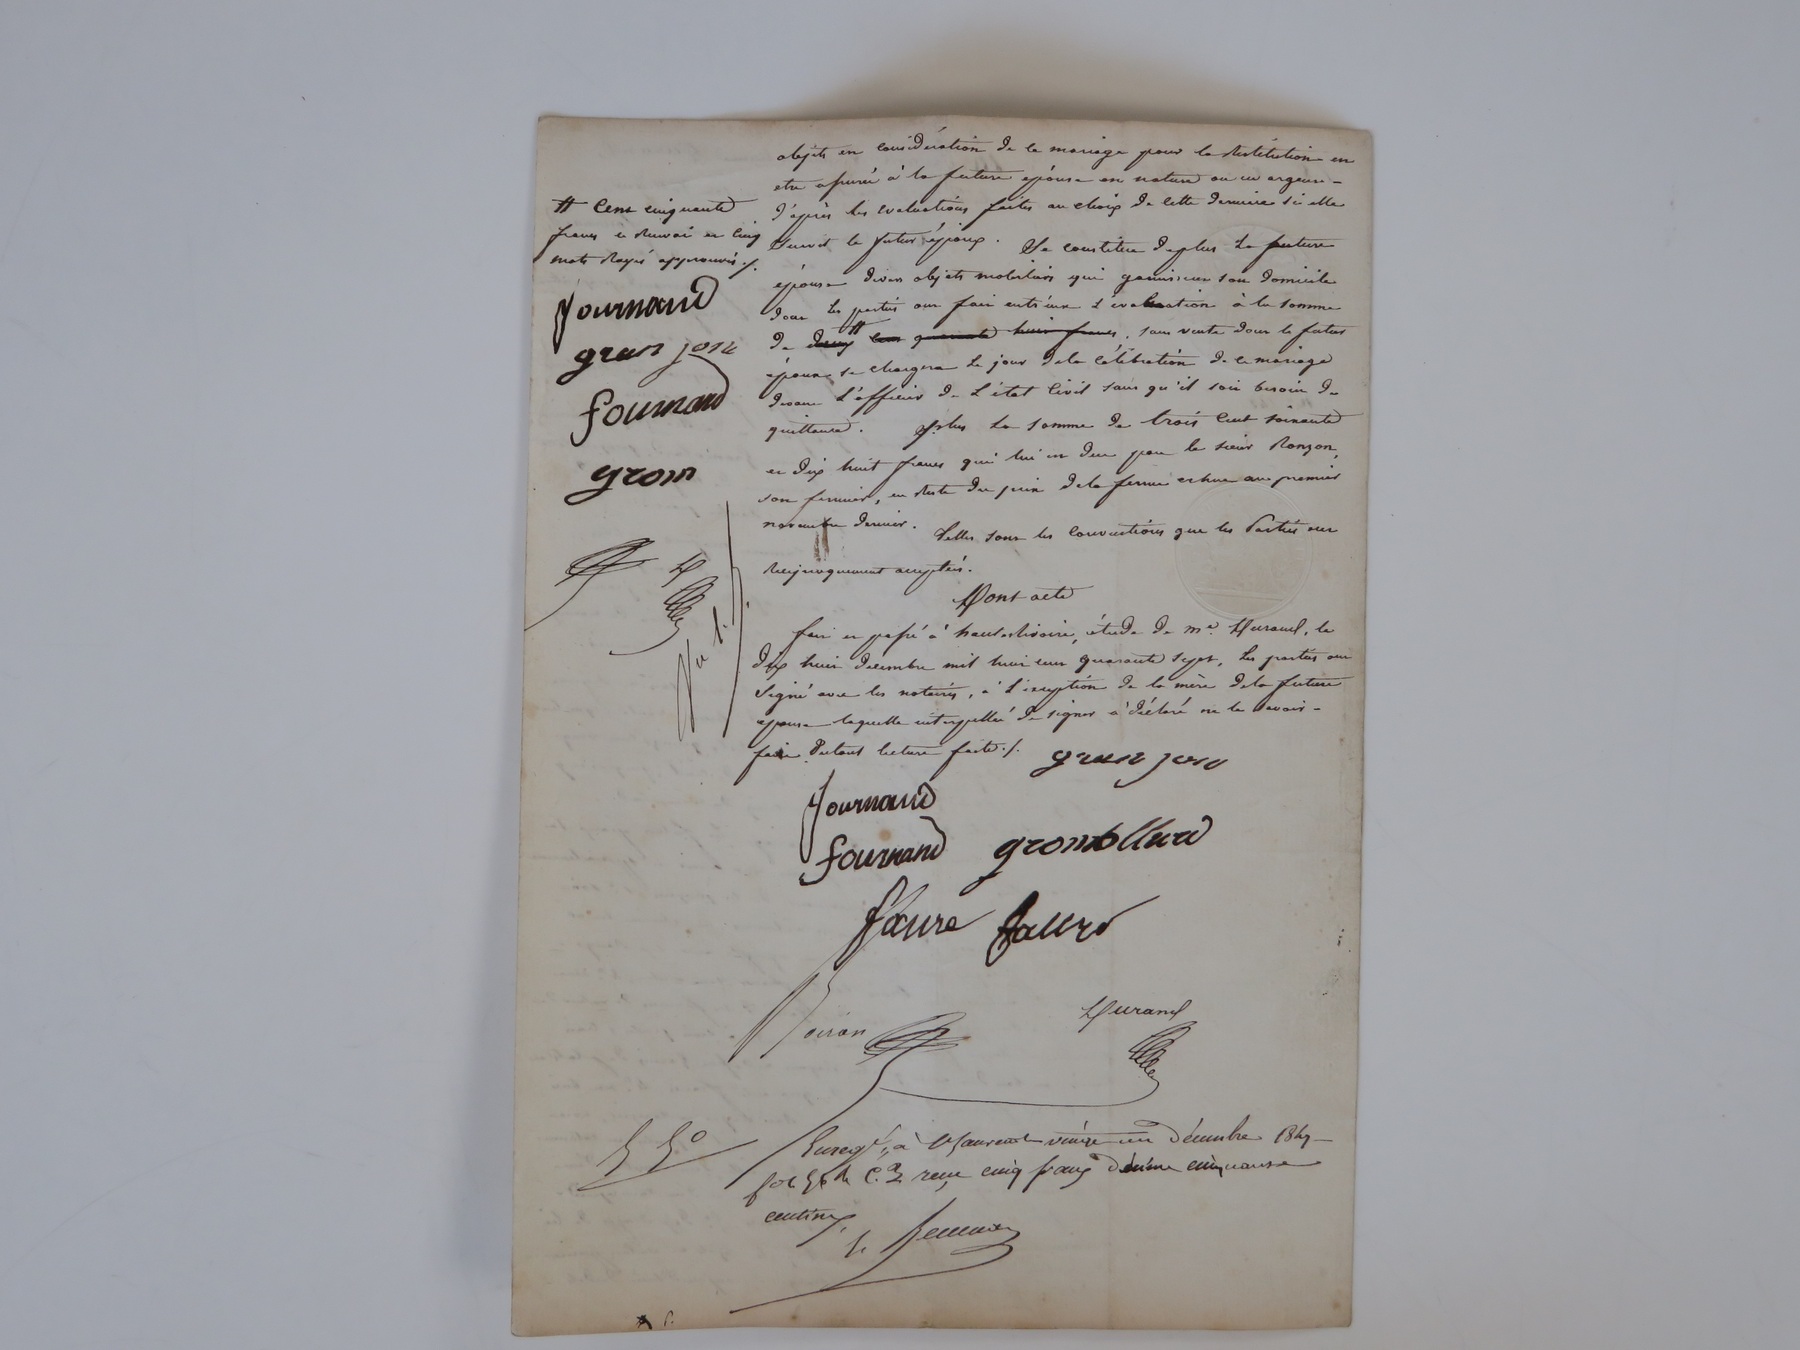 objets en considération de ce mariage pour la restitution en
etre assurée à la future épouse en nature ou en argent
d'après les évaluations faites au choix de cette dernière si elle
survit le futur époux. Se constitue de plus la future
épouse divers objets mobiliers qui garnissent son domicile
dont les parties ont fait entr'eux l'évaluation à la somme
de deux # cent quarante huit francs, sans vente dont le futur
époux se chargera le jour de la célébration de ce mariage
devant l'officier de l'état civil sans qu'il soit besoin de
quittance. Plus la somme de trois cent soixante
et dix huit francs qui lui est due par le sieur Ronzon,
son fermier, en reste du prix de la ferme échue au premier
novembre dernier. Telles sont les conventions que les Parties ont
réciproquement acceptées.
Dont acte
fait et passé à hauterivoire, étude de Me. Durand, le
dix huit décembre mil huit cent quarante sept, les parties ont
signé avec les notaires, à l'exception de la mère de la future
épouse laquelle interpellée de signer a déclaré ne le savoir
faire du tout lecture faite ./.
# Cent cinquante
francs et renvoi et cinq
mots rayés approuvés ./.
fournand
gran jon
fournand
gron
D
gran jon
fournand
fournand
grombellard
faure faure
Durand
Enregé. à St Laurent vingt un décembre 1847
fol 56 Ro C. 2 reçu cinq francs décime cinquante
centimes